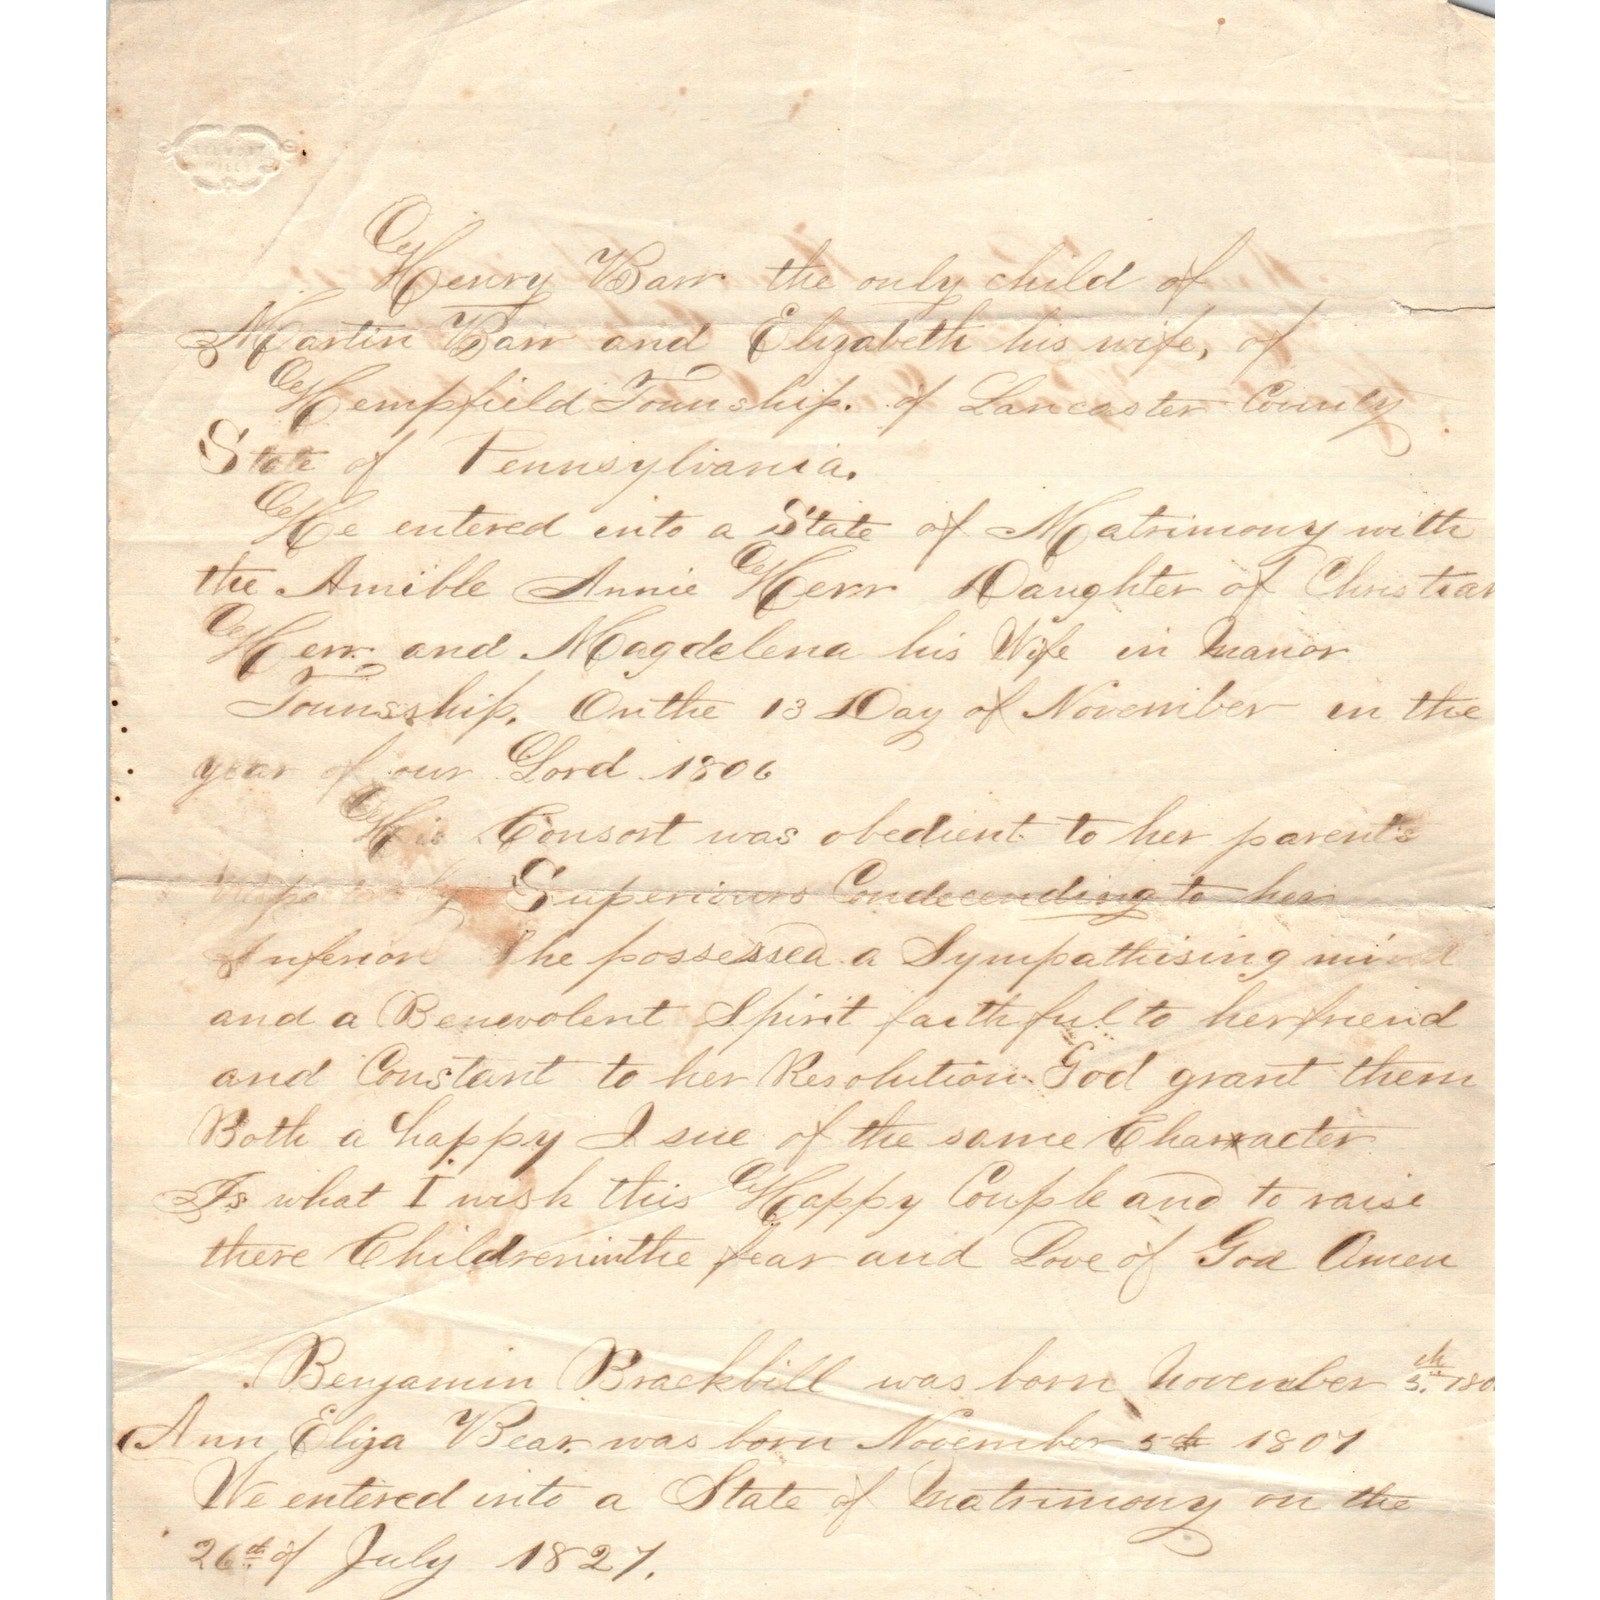 Henry Barr the only child of
Martin Barr and Elizabeth his wife, of
Hempfield Township. of Lancaster County
State of Pennsylvania.
He entered into a State of Matrimony with
the Amible Annie Herr Daughter of Christian
Herr and Magdelena his Wife in Manor
Townsship. On the 13 Day of November in the
year of our Lord 1806
His Consort was obedient to her parents
Superiours Condecending to her
Inferior She possessed a Sympathising mind
and a Benevolent Spirit faithful to her friend
and Constant to her Resolution God grant them
Both a happy Isue of the same Character
Is what I wish this Happy Couple and to raise
there Children in the fear and Love of God Amen
Benjamin Brackbill was born November 5th
Ann Eliza Bear was born November 5th 1807
We entered into a State of Matrimony on the
26th of July 1827.